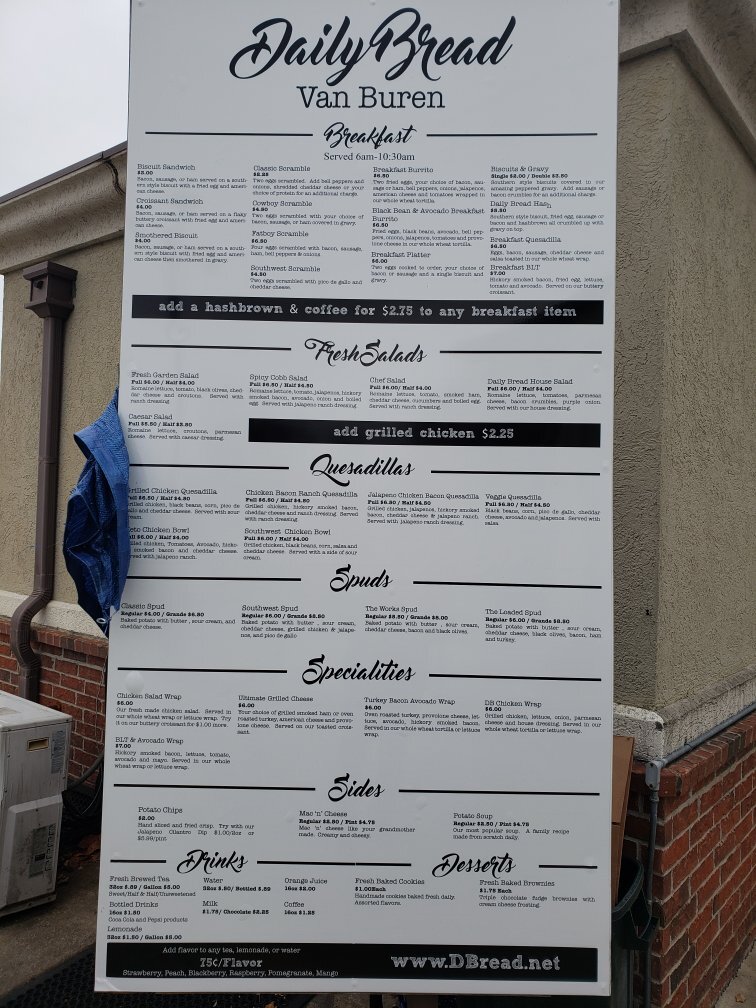 Daily Bread
Van Buren
Breakfast
Served 6am-10:30am
Biscuit Sandwich
$3.00
Bacon, sausage, or ham served on a south-
ern style biscuit with a fried egg and ameri-
can cheese.
Croissant Sandwich
$4.00
Bacon, sausage, or ham served on a flaky
buttery croissant with fried egg and ameri-
can cheese.
Smothered Biscuit
$4.00
Bacon, sausage, or ham served on a south-
ern style biscuit with fried egg and ameri-
can cheese then smothered in gravy.
Classic Scramble
$2.25
Two eggs scrambled. Add bell peppers and
onions, shredded cheddar cheese or your
choice of protein for an additional charge.
Cowboy Scramble
$4.50
Two eggs scrambled with your choice of
bacon, sausage, or ham covered in gravy.
Fatboy Scramble
$6.50
Four eggs scrambled with bacon, sausage,
ham, bell peppers & onions
Southwest Scramble
$4.50
Two eggs scrambled with pico de gallo and
cheddar cheese.
Breakfast Burrito
$6.50
Two fried eggs, your choice of bacon, sau-
sage or ham, bell peppers, onions, jalapenos,
american cheese and tomatoes wrapped in
our whole wheat tortilla.
Black Bean & Avocado Breakfast
Burrito
$6.50
Fried eggs, black beans, avocado, bell pep-
pers, onions, jalapenos, tomatoes and provo-
lone cheese in our whole wheat tortilla.
Breakfast Platter
$6.00
Two eggs cooked to order, your choice of
bacon or sausage and a single biscuit and
gravy.
Biscuits & Gravy
Single $2.00 / Double $3.50
Southern style biscuits covered in our
amazing peppered gravy. Add sausage or
bacon crumbles for an additional charge.
Daily Bread Hash
$5.50
Southern style biscuit, fried egg, sausage or
bacon and hashbrown all crumbled up with
gravy on top.
Breakfast Quesadilla
$6.50
Eggs, bacon, sausage, cheddar cheese and
salsa toasted in our whole wheat wrap.
Breakfast BLT
$7.00
Hickory smoked bacon, fried egg, lettuce,
tomato and avocado. Served on our buttery
croissant.
add a hashbrown & coffee for $2.75 to any breakfast item
Fresh Salads
Fresh Garden Salad
Full $6.00 / Half $4.00
Romaine lettuce, tomato, black olives, ched-
dar cheese and croutons. Served with
ranch dressing.
Caesar Salad
Full $5.50 / Half $3.50
Romaine lettuce, croutons, parmesan
cheese. Served with caesar dressing.
Spicy Cobb Salad
Full $6.50 / Half $4.50
Romaine lettuce, tomato, jalapenos, hickory
smoked bacon, avocado, onion and boiled
egg. Served with jalapeno ranch dressing.
Chef Salad
Full $6.00/ Half $4.00
Romaine lettuce, tomato, smoked ham,
cheddar cheese, cucumbers and boiled egg.
Served with ranch dressing.
Daily Bread House Salad
Full $6.00 / Half $4.00
Romaine lettuce, tomatoes, parmesan
cheese, bacon crumbles, purple onion.
Served with our house dressing.
add grilled chicken $2.25
Quesadillas
Grilled Chicken Quesadilla
Full $6.50 / Half $4.50
chicken, black beans, corn, pico de
gallo, cheddar cheese. Served with sour
cream.
Keto Chicken Bowl
Full $6.00 / Half $4.00
chicken, Tomatoes, Avocado, hicko-
smoked bacon and cheddar cheese.
with jalapeno ranch.
Chicken Bacon Ranch Quesadilla
Full $6.50 / Half $4.50
Grilled chicken, hickory smoked bacon,
cheddar cheese and ranch dressing. Served
with ranch dressing.
Southwest Chicken Bowl
Full $6.00 / Half $4.00
Grilled chicken, black beans, corn, salsa and
cheddar cheese. Served with a side of sour
cream.
Jalapeno Chicken Bacon Quesadilla
Full $6.50 / Half $4.50
Grilled chicken, jalapenos, hickory smoked
bacon, cheddar cheese & jalapeno ranch.
Served with jalapeno ranch dressing.
Veggie Quesadilla
Full $6.50 / Half $4.50
Black beans, corn, pico de gallo, cheddar
cheese, avocado and jalapenos. Served with
salsa.
Spuds
Classic Spud
Regular $4.00 / Grande $6.50
Baked potato with butter, sour cream, and
cheddar cheese.
Southwest Spud
Regular $6.00 / Grande $8.50
Baked potato with butter , sour cream,
cheddar cheese, grilled chicken & jalape-
nos, and pico de gallo
The Works Spud
Regular $5.50 / Grande $8.00
Baked potato with butter , sour cream,
cheddar cheese, bacon and black olives.
The Loaded Spud
Regular $6.00 / Grande $8.50
Baked potato with butter , sour cream,
cheddar cheese, black olives, bacon, ham
and turkey.
Specialities
Chicken Salad Wrap
$6.00
Our fresh made chicken salad. Served in
our whole wheat wrap or lettuce wrap. Try
it on our buttery croissant for $1.00 more.
BLT & Avocado Wrap
$7.00
Hickory smoked bacon, lettuce, tomato,
avocado and mayo. Served in our whole
wheat wrap or lettuce wrap.
Ultimate Grilled Cheese
$6.00
Your choice of grilled smoked ham or oven
roasted turkey, american cheese and provo-
lone cheese. Served on our toasted crois-
sant.
Turkey Bacon Avocado Wrap
$6.00
Oven roasted turkey, provolone cheese, let-
tuce, avocado, hickory smoked bacon.
Served in our whole wheat tortilla or lettuce
wrap.
DB Chicken Wrap
$6.00
Grilled chicken, lettuce, onion, parmesan
cheese and house dressing. Served in our
whole wheat tortilla or lettuce wrap.
Sides
Potato Chips
$2.00
Hand sliced and fried crisp. Try with our
Jalapeno Cilantro Dip $1.00/2oz or
$5.99/pint
Mac 'n' Cheese
Regular $2.50 / Pint $4.75
Mac 'n' cheese like your grandmother
made. Creamy and cheesy.
Potato Soup
Regular $2.50 / Pint $4.75
Our most popular soup. A family recipe
made from scratch daily.
Drinks
Fresh Brewed Tea
32oz $.89 / Gallon $5.00
Sweet/Half & Half/Unsweetened
Bottled Drinks
16oz $1.50
Coca Cola and Pepsi products
Lemonade
32oz $1.50 / Gallon $5.00
Water
32oz $.50/ Bottled $.89
Milk
$1.75/ Chocolate $2.25
Orange Juice
16oz $2.00
Coffee
16oz $1.25
Desserts
Fresh Baked Cookies
$1.00Each
Handmade cookies baked fresh daily.
Assorted flavors.
Fresh Baked Brownies
$1.75 Each
Triple chocolate fudge brownies with
cream cheese frosting.
Add flavor to any tea, lemonade, or water
75¢/Flavor
Strawberry, Peach, Blackberry, Raspberry, Pomegranate, Mango
www.DBread.net